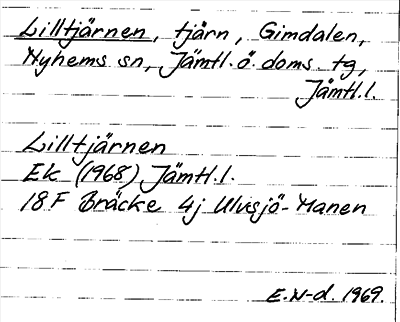 Lilltjärnen, tjärn, Gimdalen,
Nyhems sn, Jämtl. ö. doms. tg,
Jämtl.l.
Lilltjärnen
Ek (1968) Jämtl.l.
18F Bräcke 4j Ulvsjö-Manen
E.N-d. 1969.